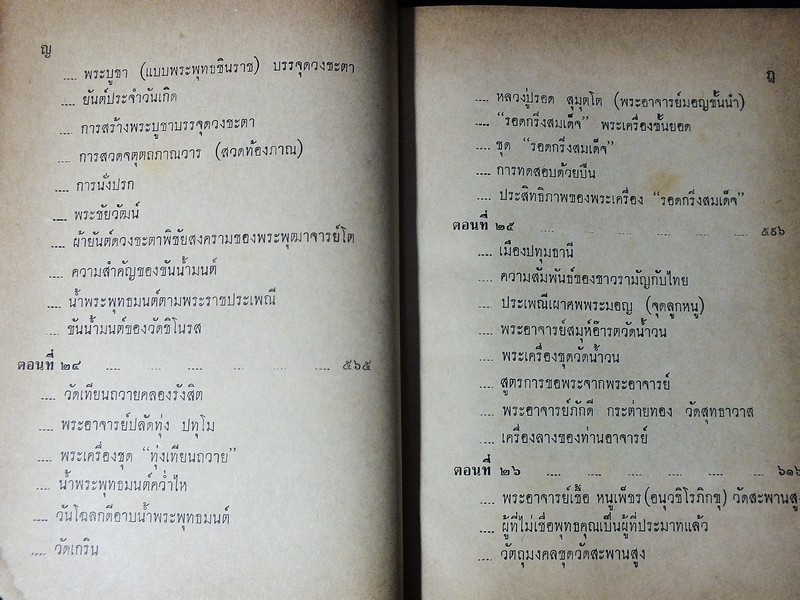 ญ
.... พระบูชา (แบบพระพุทธชินราช) บรรจุดวงชะตา
.... ยันต์ประจำวันเกิด
.... การสร้างพระบูชาบรรจุดวงชะตา
.... การสวดจตุตถภาณวาร (สวดท้องภาณ)
.... การนั่งปรก
.... พระชัยวัฒน์
.... ผ้ายันต์ดวงชะตาพิชัยสงครามของพระพุฒาจารย์โต
.... ความสำคัญของขันน้ำมนต์
.... น้ำพระพุทธมนต์ตามพระราชประเพณี
.... ขันน้ำมนต์ของวัดชิโนรส
ตอนที่ ๒๔ .... .... .... .... .... ๕๖๕
.... วัดเทียนถวายคลองรังสิต
.... พระอาจารย์ปลัดทุ่ง ปทุโม
.... พระเครื่องชุด “ทุ่งเทียนถวาย”
.... น้ำพระพุทธมนต์คว่ำไห
.... วันโฉลกดีอาบน้ำพระพุทธมนต์
.... วัดเกริน
ฎ
.... หลวงปู่รอด สุมุตโต (พระอาจารย์มอญชั้นนำ)
.... “รอดกริ่งสมเด็จ” พระเครื่องชั้นยอด
.... ชุด “รอดกริ่งสมเด็จ”
.... การทดสอบด้วยปืน
.... ประสิทธิภาพของพระเครื่อง “รอดกริ่งสมเด็จ”
ตอนที่ ๒๕ .... .... .... .... .... ๕๙๖
.... เมืองปทุมธานี
.... ความสัมพันธ์ของชาวรามัญกับไทย
.... ประเพณีเผาศพพระมอญ (จุดลูกหนู)
.... พระอาจารย์สมุห์อ๊ารตวัดน้ำวน
.... พระเครื่องชุดวัดน้ำวน
.... สูตรการขอพระจากพระอาจารย์
.... พระอาจารย์ภักดี กระต่ายทอง วัดสุทธาวาส
.... เครื่องลางของท่านอาจารย์
ตอนที่ ๒๖ .... .... .... .... .... ๖๑๖
.... พระอาจารย์เชื้อ หนูเพ็ชร (อนุวชิโรภิกขุ) วัดสะพานสูง
.... ผู้ที่ไม่เชื่อพุทธคุณเป็นผู้ที่ประมาทแล้ว
.... วัตถุมงคลชุดวัดสะพานสูง